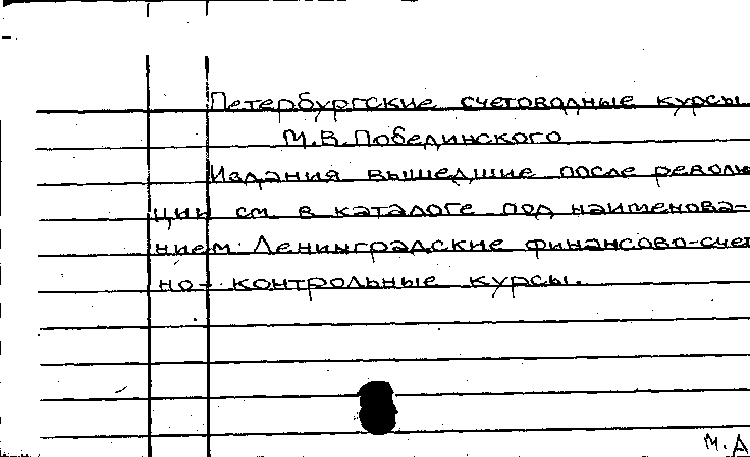 Петербургские счетоводные курсы
М.В.Побединского
Издания вышедшие после револю
ции см. в каталоге под наименова-
нием: Ленинградские финансово-счет
но-контрольные курсы.
М.А